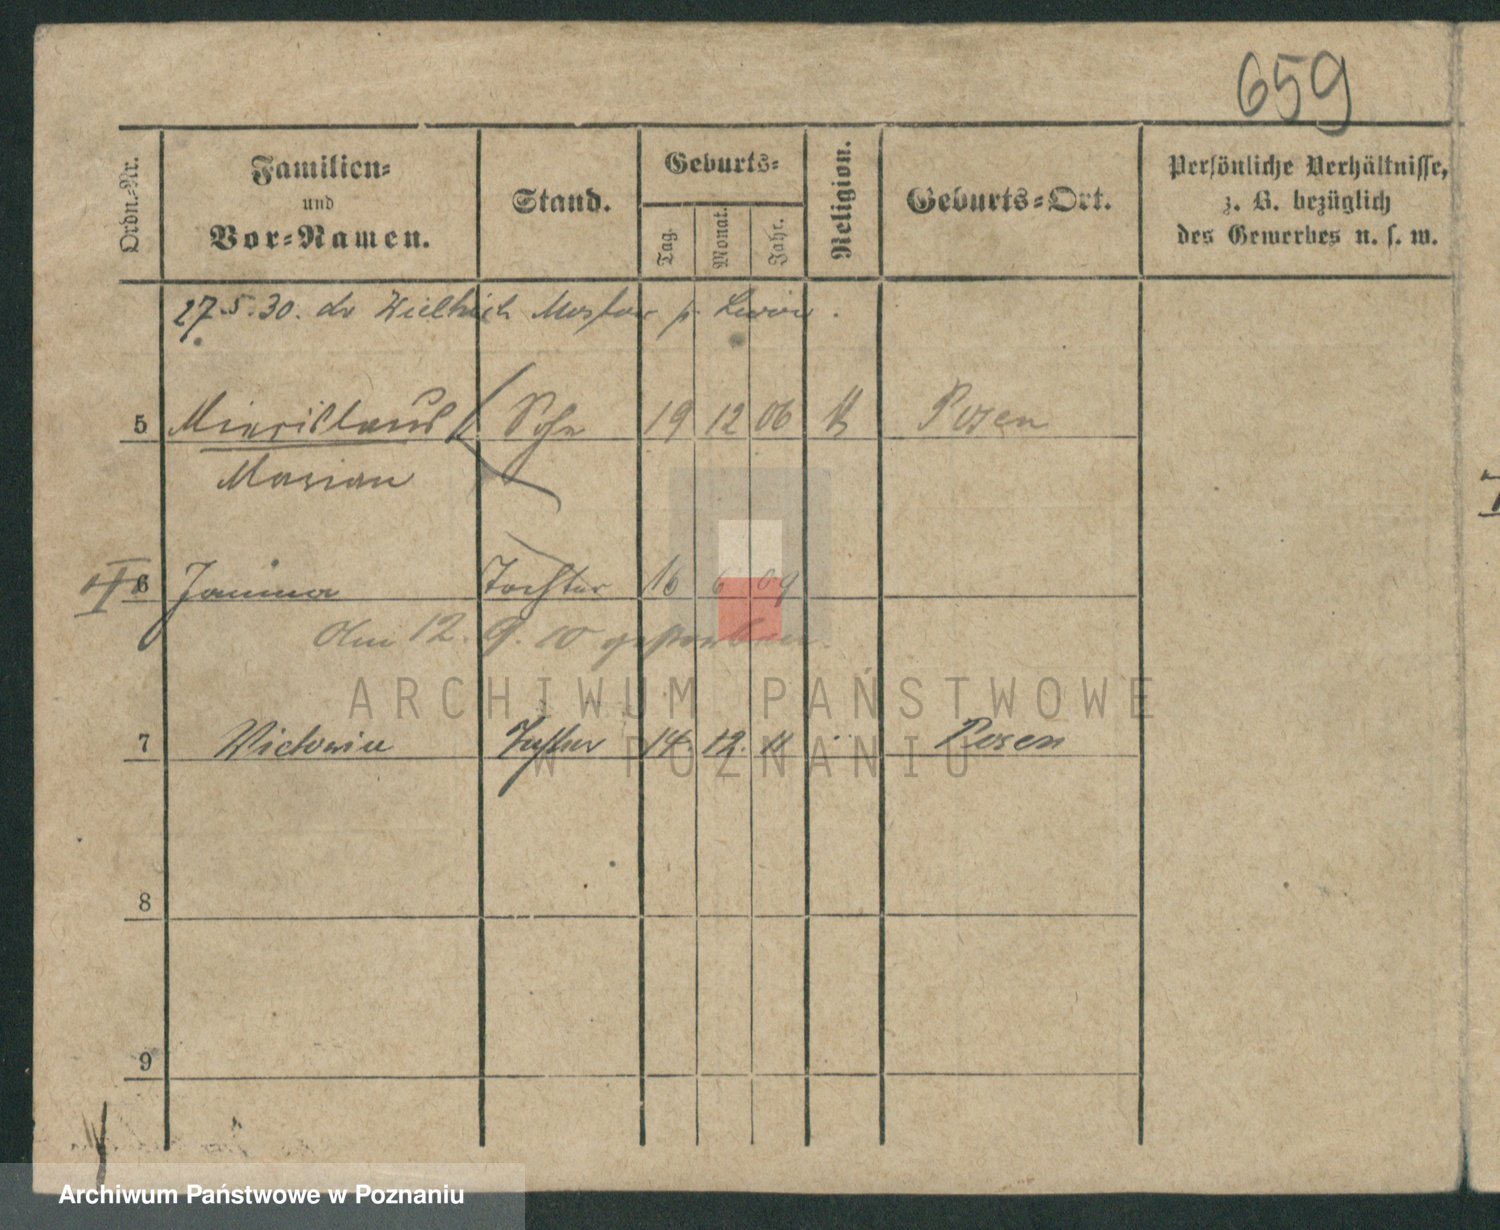 659
Ordn.-Nr.
Familien-
und
Vor-Namen.
Stand.
Geburts-
Tag.
Monat.
Jahr.
Religion.
Geburts-Ort.
Persönliche Verhältnisse,
z. B. bezüglich
des Gewerbes u. s. w.
27.5.30. do Wielkich Mostów p. Lwów.
5 Miecislaus Sohn 19 12 06 k Posen
Marian
6 Janina Tochter 16 6 09
Am 12. 9. 10 gestorben.
7 Victoria Tochter 14. 12. 11 Posen
8
9
ARCHIWUM PAŃSTWOWE
W POZNANIU
Archiwum Państwowe w Poznaniu